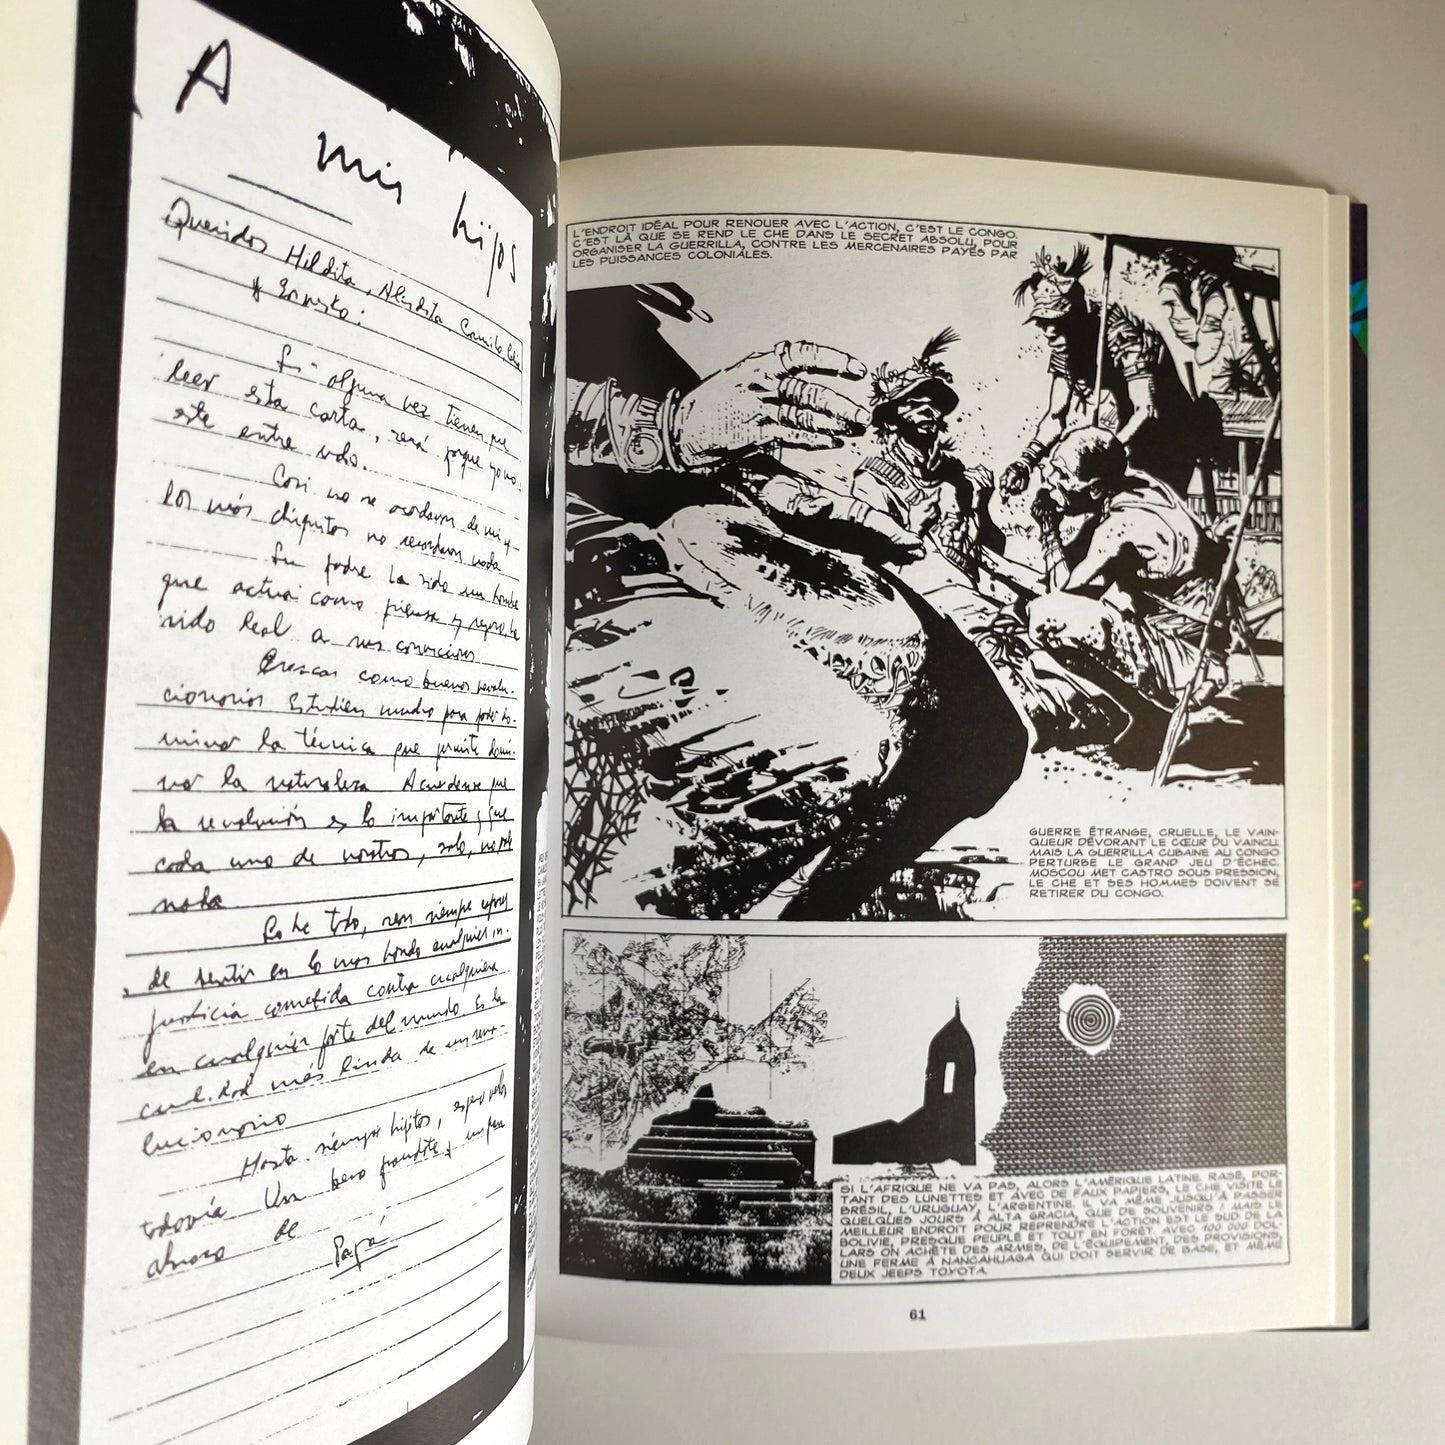 A
mis hijos
Queridos Hildita, Aleidita, Camilo, Celia
y Ernesto:
Si alguna vez tienen que
leer esta carta, será porque yo no
esté entre uds.
Casi no se acordarán de mi y
los más chiquitos no recordarán nada
Su padre ha sido un hombre
que actúa como piensa y, seguro, ha
sido leal a sus convicciones
Crezcan como buenos revolu-
cionarios Estudien mucho para poder do-
minar la técnica que permite domi-
nar la naturaleza Acuérdense que
la revolución es lo importante y que
cada uno de nosotros, solo, no vale
nada
Sobre todo, sean siempre capaces
de sentir en lo más hondo cualquier in-
justicia cometida contra cualquiera
en cualquier parte del mundo. Es la
cualidad más linda de un revo-
lucionario
Hasta siempre hijitos, espero verlos
todavía Un beso grandote y un
abrazo de
Papá
L'ENDROIT IDÉAL POUR RENOUER AVEC L'ACTION, C'EST LE CONGO.
C'EST LÀ QUE SE REND LE CHE DANS LE SECRET ABSOLU, POUR
ORGANISER LA GUERRILLA, CONTRE LES MERCENAIRES PAYÉS PAR
LES PUISSANCES COLONIALES.
GUERRE ÉTRANGE, CRUELLE, LE VAIN-
QUEUR DÉVORANT LE CŒUR DU VAINCU.
MAIS LA GUERRILLA CUBAINE AU CONGO
PERTURBE LE GRAND JEU D'ÉCHEC.
MOSCOU MET CASTRO SOUS PRESSION,
LE CHE ET SES HOMMES DOIVENT SE
RETIRER DU CONGO.
SI L'AFRIQUE NE VA PAS, ALORS L'AMÉRIQUE LATINE. RASÉ, POR-
TANT DES LUNETTES ET AVEC DE FAUX PAPIERS, LE CHE VISITE LE
BRÉSIL, L'URUGUAY, L'ARGENTINE. IL VA MÊME JUSQU'À PASSER
QUELQUES JOURS À ALTA GRACIA, QUE DE SOUVENIRS ! MAIS LE
MEILLEUR ENDROIT POUR REPRENDRE L'ACTION EST LE SUD DE LA
BOLIVIE, PRESQUE PEUPLÉ ET TOUT EN FORÊT. AVEC 100 000 DOL-
LARS ON ACHÈTE DES ARMES, DE L'ÉQUIPEMENT, DES PROVISIONS,
UNE FERME À NANCAHUAGA QUI DOIT SERVIR DE BASE, ET MÊME
DEUX JEEPS TOYOTA.
61